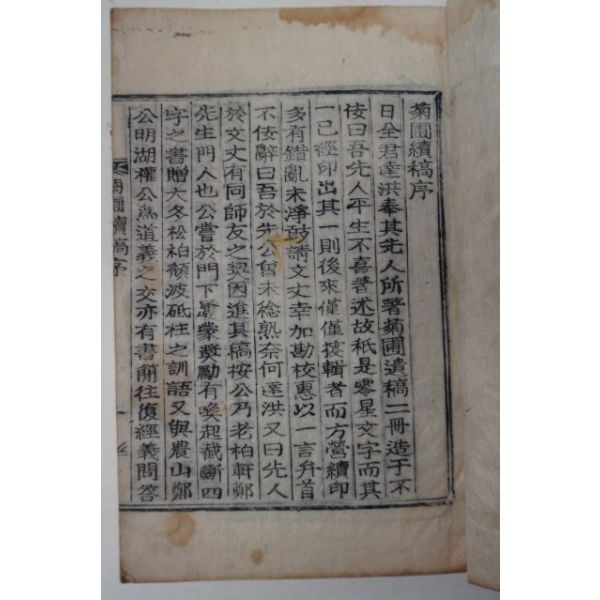 菊圃續稿序
日全君逵洪奉其先人所著菊圃遺稿二冊造于不
侫曰吾先人平生不喜著述故秪是零星文字而其
一已經印出其一則後來僅僅搜輯者而方營續印
多有錯亂未淨敢請文丈幸加勘校惠以一言弁首
不侫辭曰吾於先公曾未稔熟奈何逵洪又曰先人
於文丈有同師友之契因進其稿按公乃老柏軒鄭
先生門人也公嘗於門下屢蒙奬勵有喚起截斷四
字之書贈大冬松柏頹波砥柱之訓語又與農山鄭
公明湖權公爲道義之交亦有書牘往復經義問答
菊圃續稿序
一